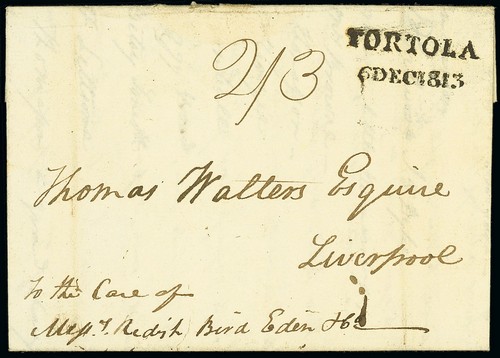 TORTOLA
6DEC1813
2/3
Thomas Walters Esquire
Liverpool
To the Care of
Messrs. Redish Bird Eden & Co